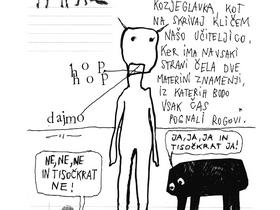 KOZJEGLAVKA, KOT
NA SKRIVAJ KLIČEM
NAŠO UČITELJICO,
KER IMA NA VSAKI
STRANI ČELA DVE
MATERINI ZNAMENJI,
IZ KATERIH BODO
VSAK ČAS
POGNALI ROGOVI.
hop
hop
dajmo
JA, JA, JA IN
TISOČKRAT JA!
NE, NE, NE
IN TISOČKRAT
NE!